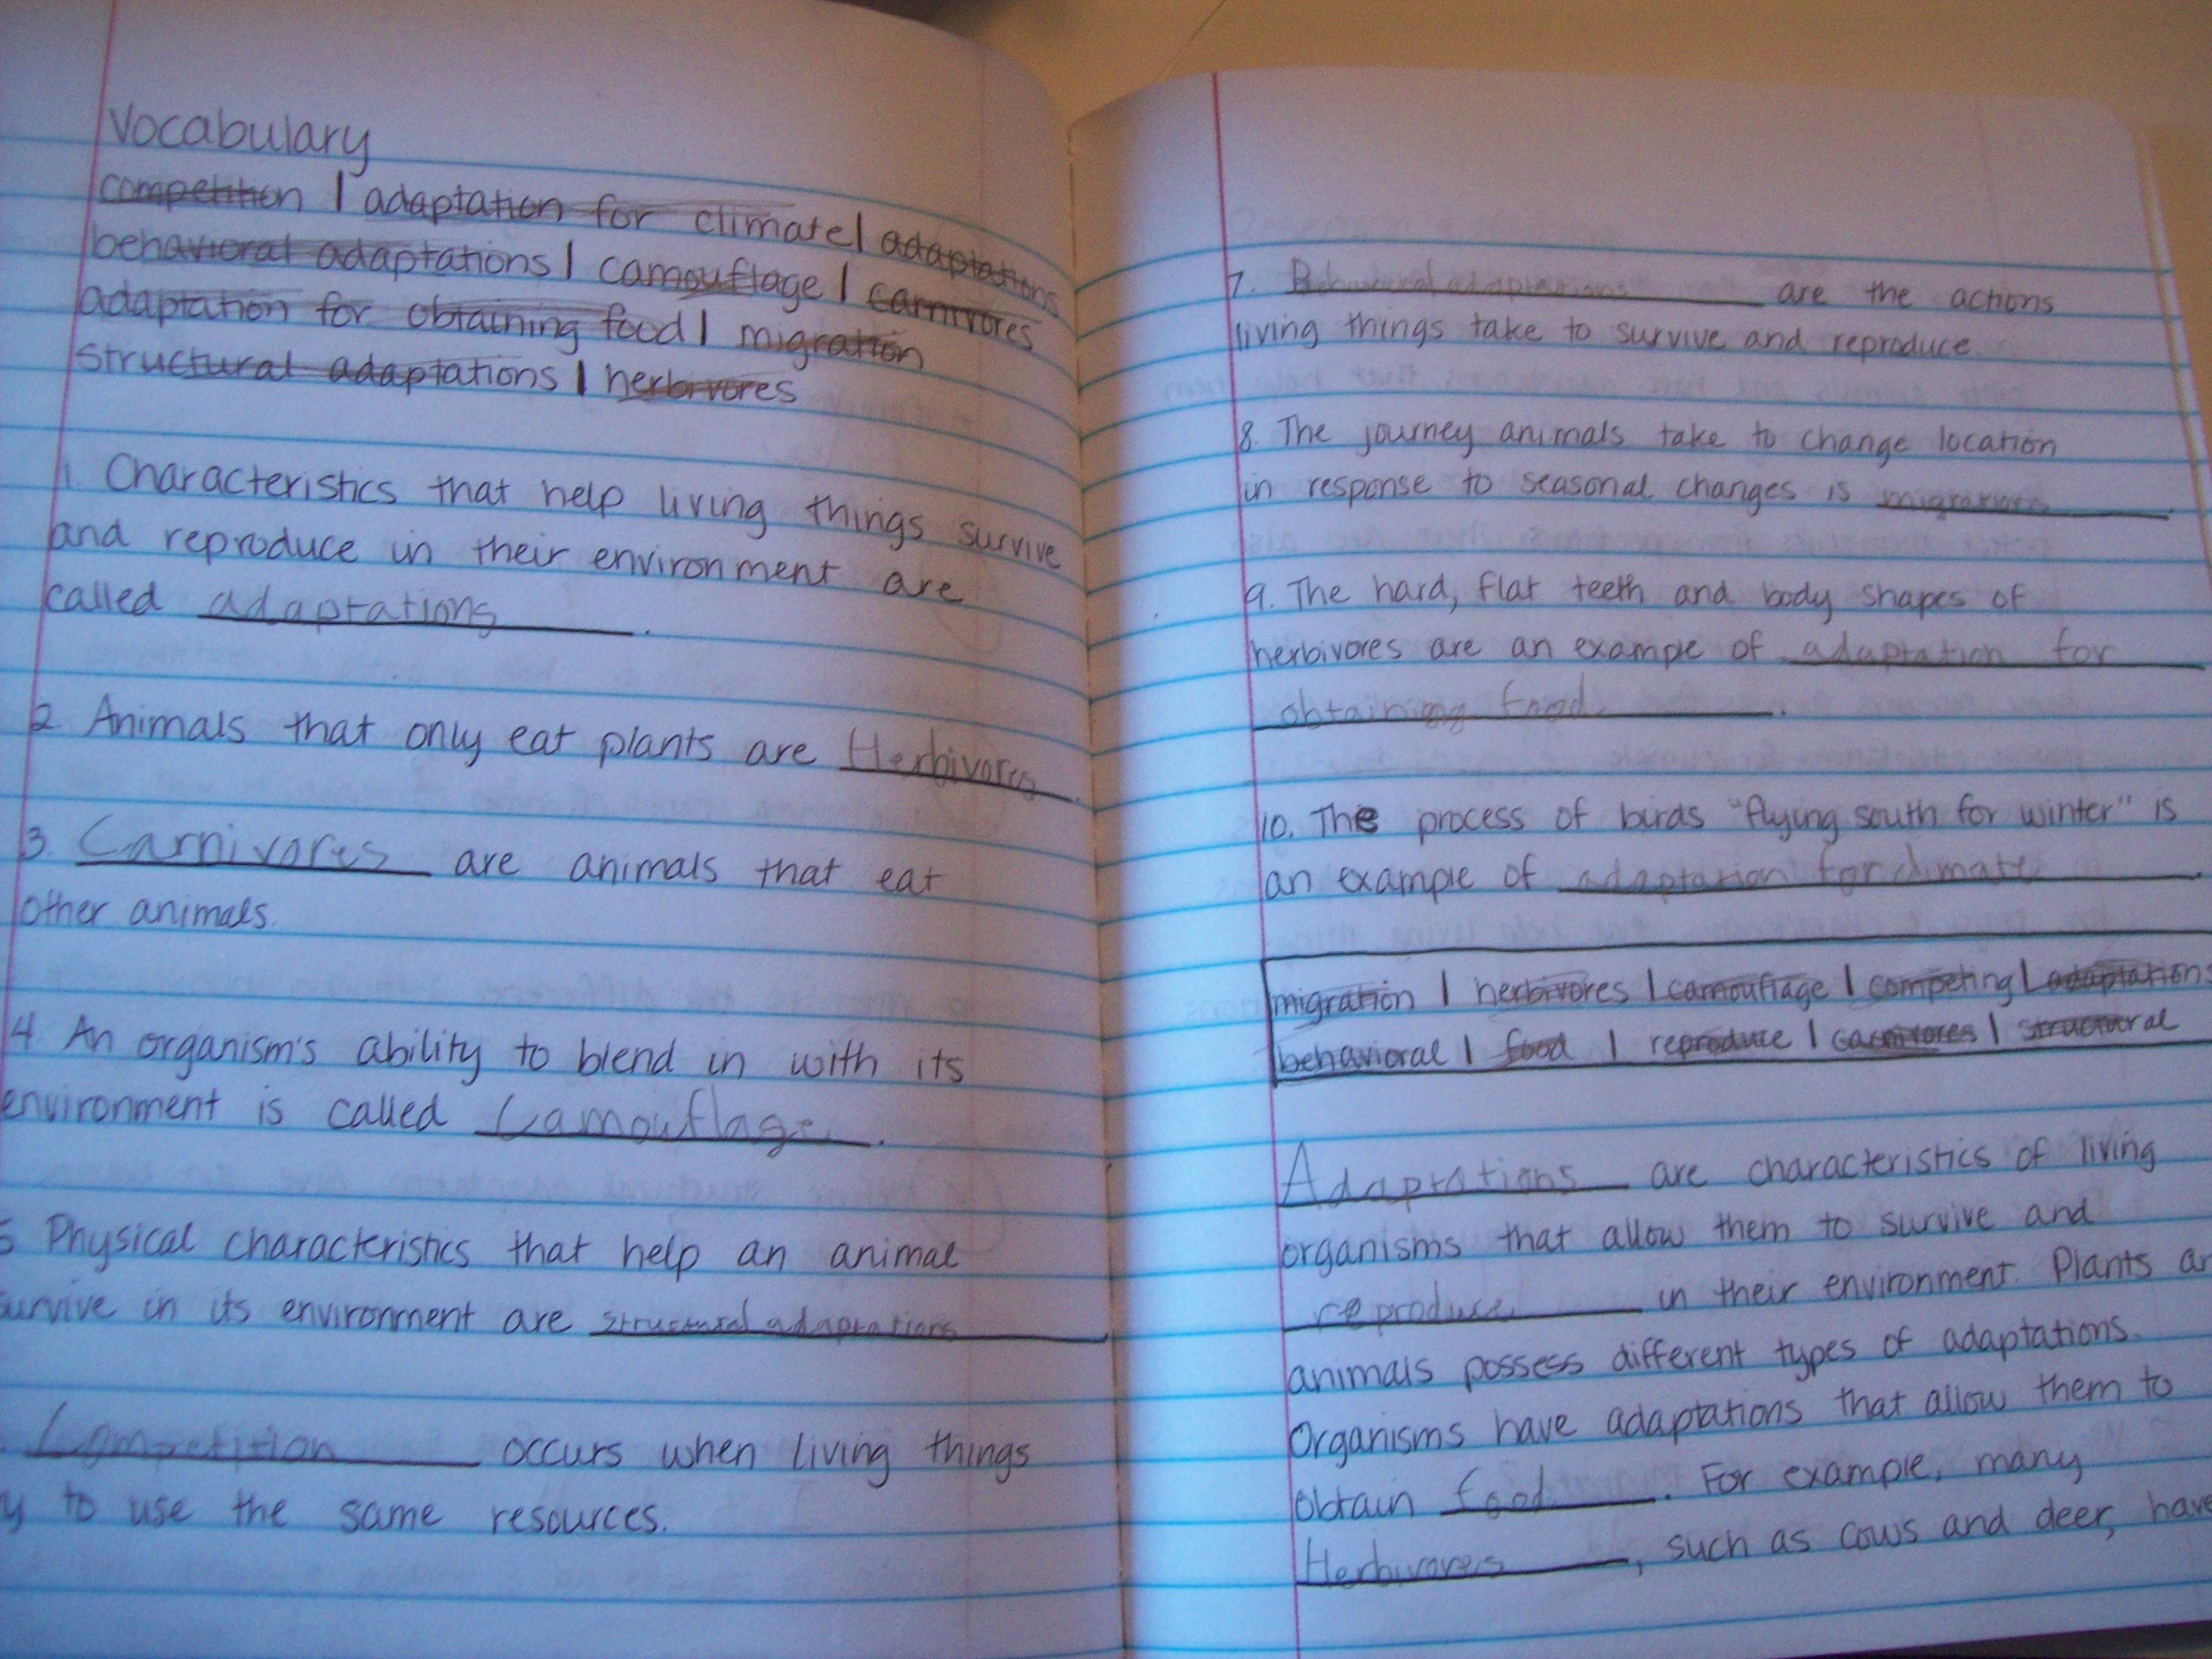 Vocabulary
competition | adaptation for climate | adaptations
behavioral adaptations | camouflage | carnivores
adaptation for obtaining food | migration
structural adaptations | herbivores
1. Characteristics that help living things survive
and reproduce in their environment are
called adaptations.
2. Animals that only eat plants are Herbivores.
3. Carnivores are animals that eat
other animals.
4. An organism's ability to blend in with its
environment is called Camouflage.
5. Physical characteristics that help an animal
survive in its environment are structural adaptations
Competition occurs when living things
y to use the same resources.
7. Behavioral adaptations are the actions
living things take to survive and reproduce
8. The journey animals take to change location
in response to seasonal changes is migration.
9. The hard, flat teeth and body shapes of
herbivores are an example of adaptation for
obtaining food.
10. The process of birds "flying south for winter" is
an example of adaptation for climate.
migration | herbivores | camouflage | competing | adaptations
behavioral | food | reproduce | carnivores | structural
Adaptations are characteristics of living
organisms that allow them to survive and
reproduce in their environment. Plants an
animals possess different types of adaptations.
Organisms have adaptations that allow them to
obtain food. For example, many
Herbivores, such as cows and deer, have